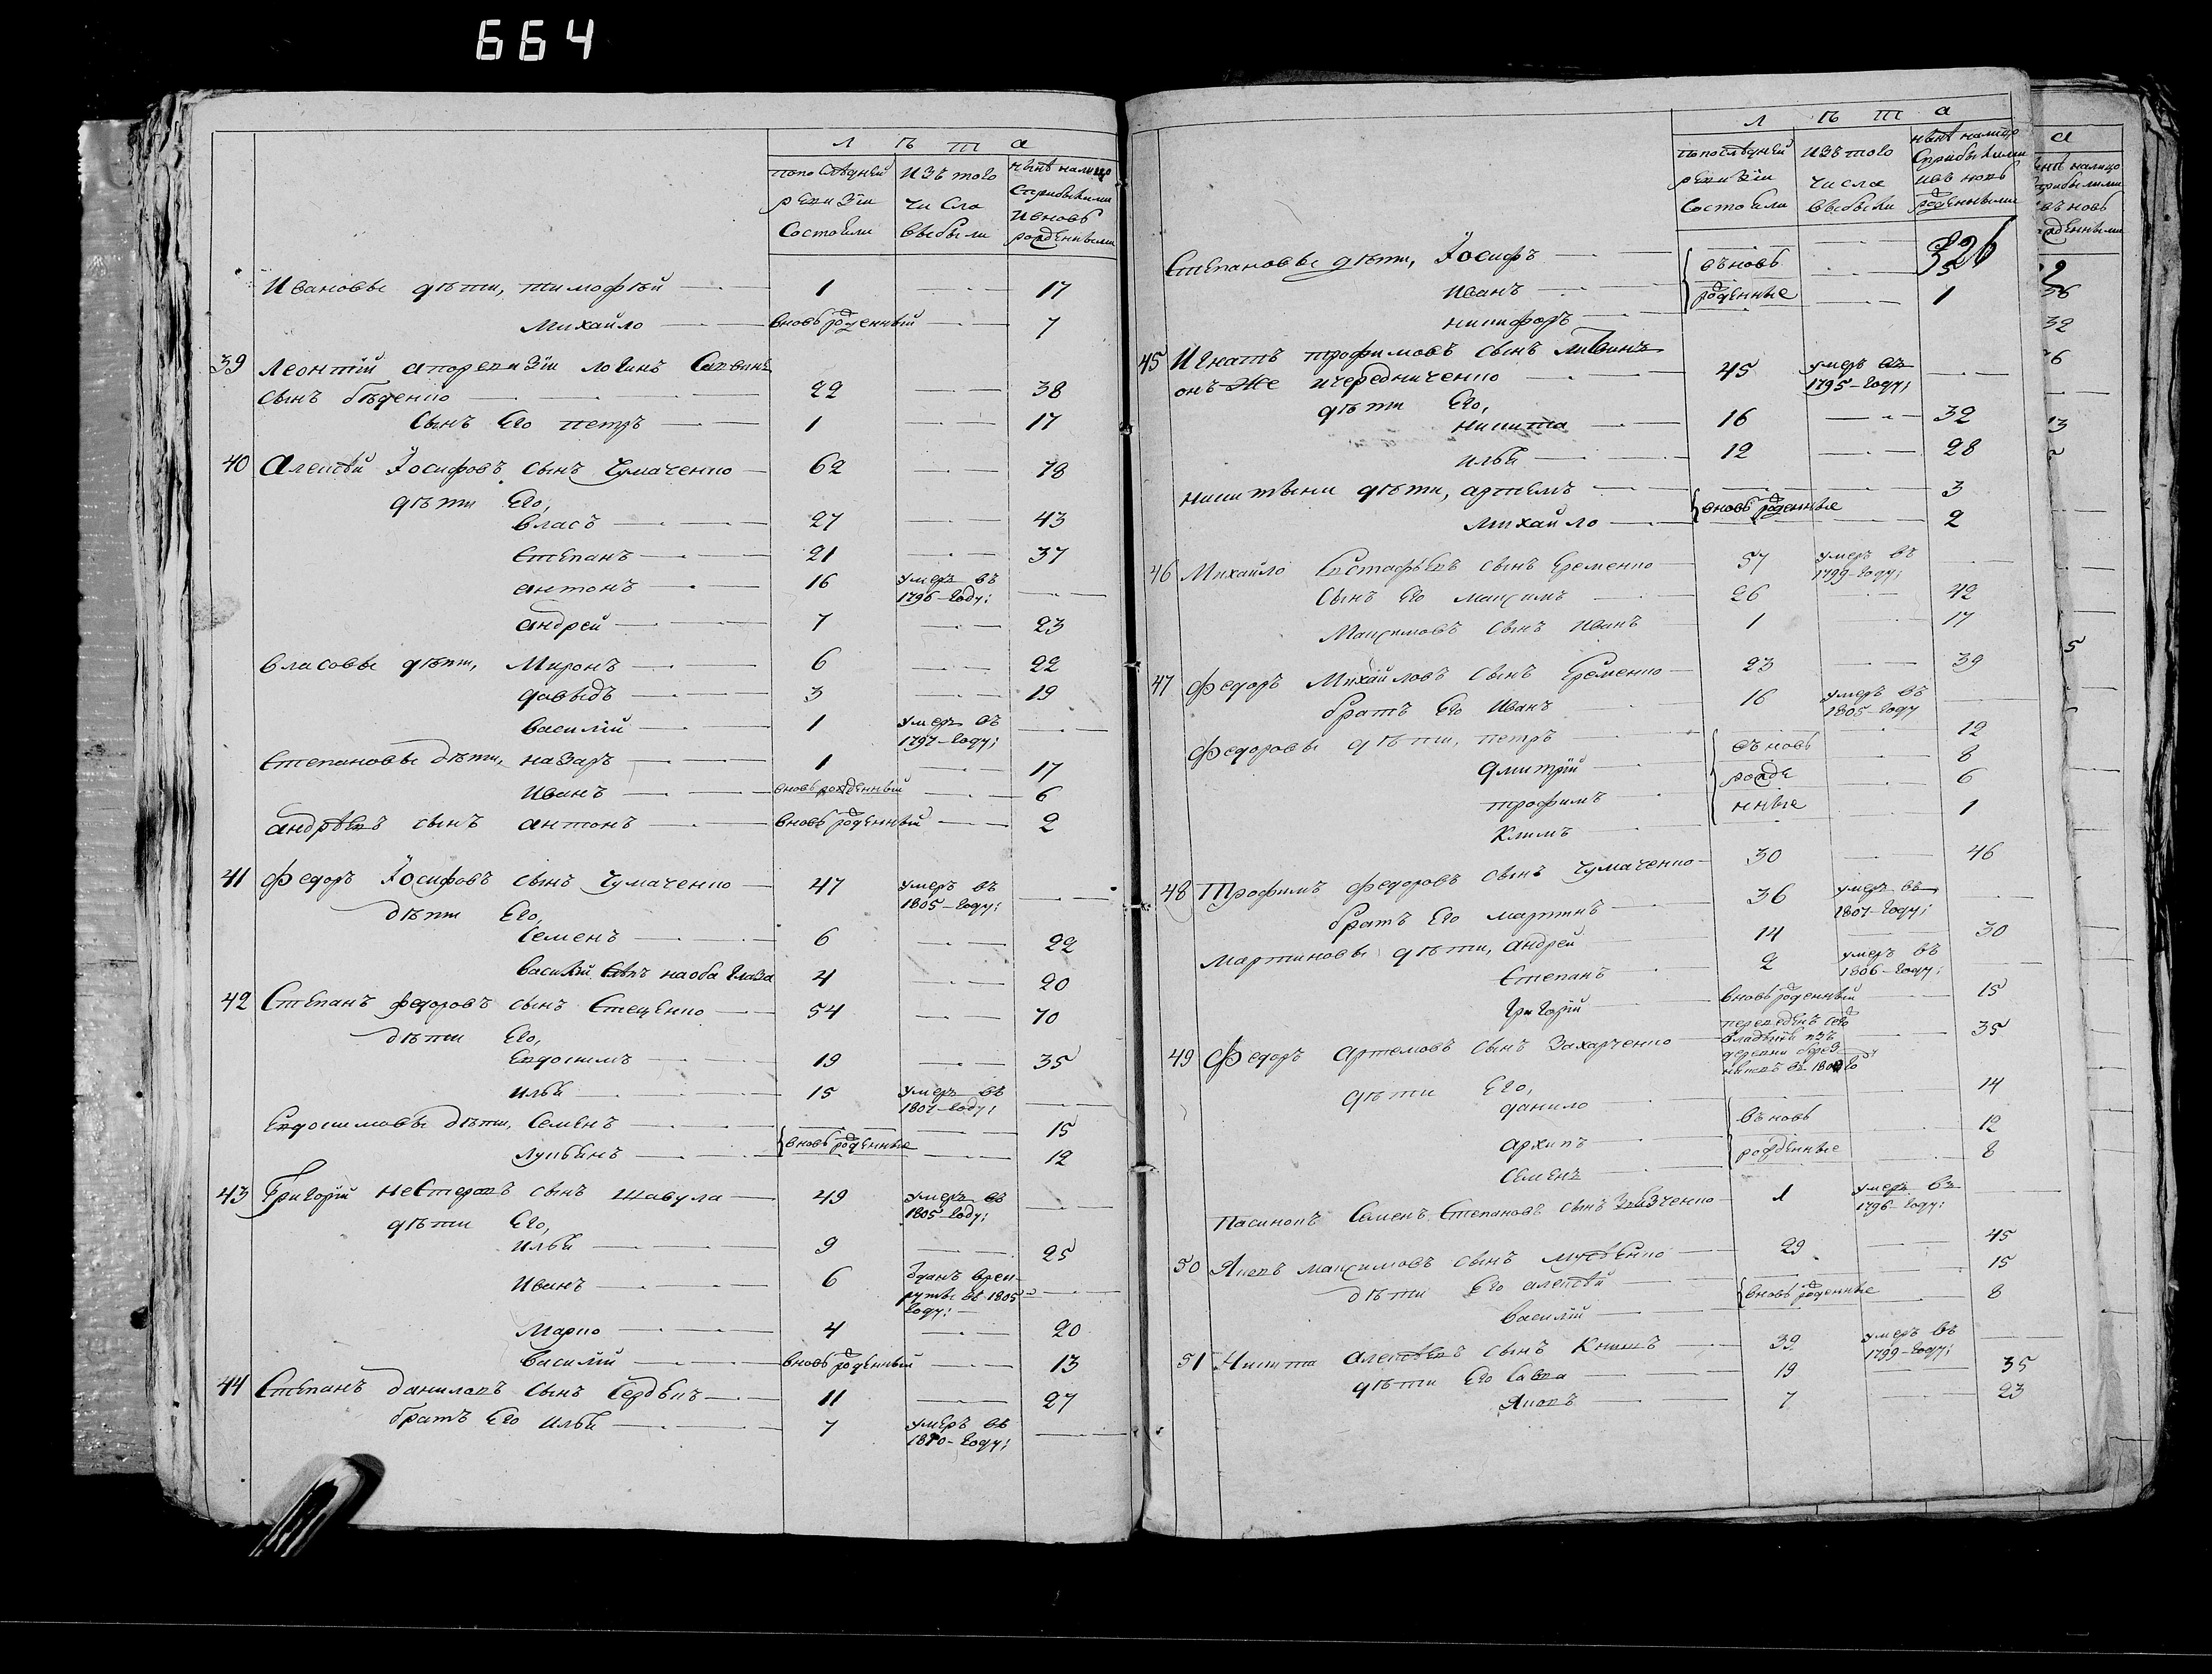 664
Л ѣ т а
попослѣдней изъ того нынѣ налицо
ревизіи числа сприбылыми
состояли выбыли ивновь
рожденными
Ивановы дѣти, тимофѣй 1 17
Михайло вновь рожденный 7
39 Леонтій апоревизіи логинъ
сынъ бѣденко 22 38
Сынъ Его петръ 1 17
40 Алексѣй Іосифовъ сынъ Чумаченко 62 78
дѣти Его,
власъ 27 43
Степанъ 21 37
антонъ 16 умеръ въ
1796-году;
андрей 7 23
власовы дѣти, Миронъ 6 22
давыдъ 3 19
василій 1 умеръ въ
1797-году;
Степановы дѣти, назаръ 1 17
Иванъ вновь рожденный 6
андрѣевъ сынъ антонъ вновь рожденный 2
41 Федоръ Іосифовъ сынъ Чумаченко 47 умеръ въ
1805-году;
дѣти Его,
Семенъ 6 22
василій слѣпъ на оба глаза 4 20
42 Степанъ федоровъ сынъ Стеценко 54 70
дѣти Его,
Евдокимъ 19 35
илья 15 умеръ въ
1807-году;
Евдокимовы дѣти, Семенъ 15
вновь рожденные
лукьянъ 12
43 Григорій нестеровъ сынъ шавула 49 умеръ въ
1805-году;
дѣти Его,
илья 9 25
Иванъ 6 Отданъ врек-
руты въ 1805
году;
Марко 4 20
василій вновь рожденный 13
44 Степанъ даниловъ сынъ Сердѣкъ 11 27
братъ Его илья 7 умеръ въ
1810-году;
Л ѣ т а
попослѣдней изъ того нынѣ налицо
ревизіи числа сприбылыми
состояли выбыли ивновь
рожденными
326
Степановы дѣти, Іосифъ
въновь
иванъ 5
рожденные
никифоръ 1
45 Игнатъ трофимовъ сынъ литвинъ
онъ же ичередниченко 45 умеръ въ
1795-году;
дѣти Его,
никита 16 32
илья 12 28
никитины дѣти, артемъ 3
вновь рожденные
михайло 2
46 Михайло Евстафьевъ сынъ Еременко 57 умеръ въ
1799-году;
сынъ Его максимъ 26 42
Максимовъ сынъ иванъ 1 17
47 федоръ Михайловъ сынъ Еременко 23 39
братъ Его иванъ 16 умеръ въ
1805-году
федоровы дѣти, петръ 12
въновь
дмитрій 8
рожде
трофимъ 6
нные
Климъ 1
48 Трофимъ федоровъ сынъ чумаченко 30 46
братъ Его мартинъ 36 умеръ въ
1807-году;
мартиновы дѣти, андрей 14 30
Степанъ 2 умеръ въ
1806-году;
григорій вновь рожденный 15
49 Федоръ артемовъ сынъ Захарченко переведенъ 35
владѣнія изъ
деревни
дѣти Его,
данило 14
въновь
архипъ 12
рожденные
Семенъ 8
пасинокъ Семенъ Степановъ сынъ 1 умеръ въ
1796-году;
50 Яковъ максимовъ сынъ 29 45
дѣти Его алексѣй 15
вновь рожденные
василій 8
51 Никита алексѣевъ сынъ Книшъ 39 умеръ въ
1799-году;
дѣти Его Савва 19 35
Яковъ 7 23